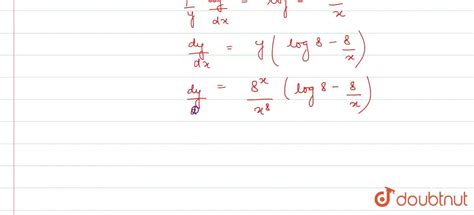 1/y dy/dx = log 8 - 8/x
dy/dx = y ( log 8 - 8/x )
dy/d = 8^x/x^8 ( log 8 - 8/x )
doubtnut